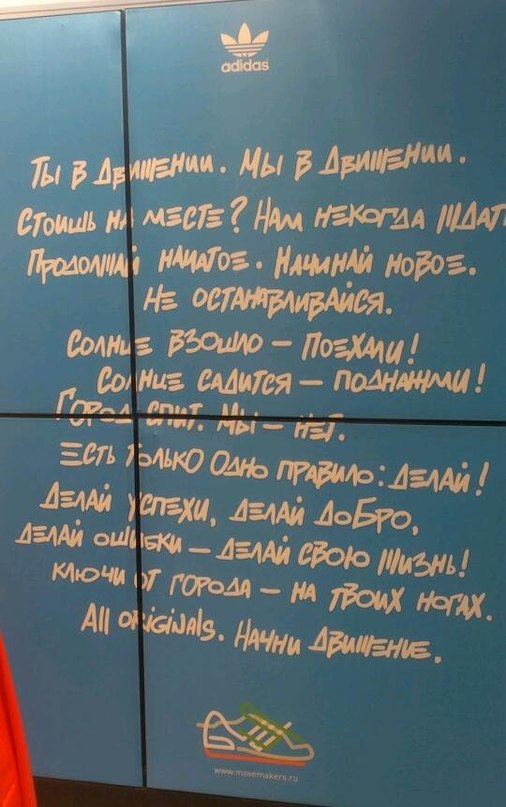 adidas
Ты в движении. Мы в движении.
Стоишь на месте? Нам некогда ждат
Продолжай начатое. Начинай новое.
Не останавливайся.
Солнце взошло — поехали!
Солнце садится — поднажми!
Город спит. Мы — нет.
Есть только одно правило: делай!
Делай успехи, делай добро,
делай ошибки — делай свою жизнь!
Ключи от города — на твоих ногах.
All originals. Начни движение.
www.movemakers.ru